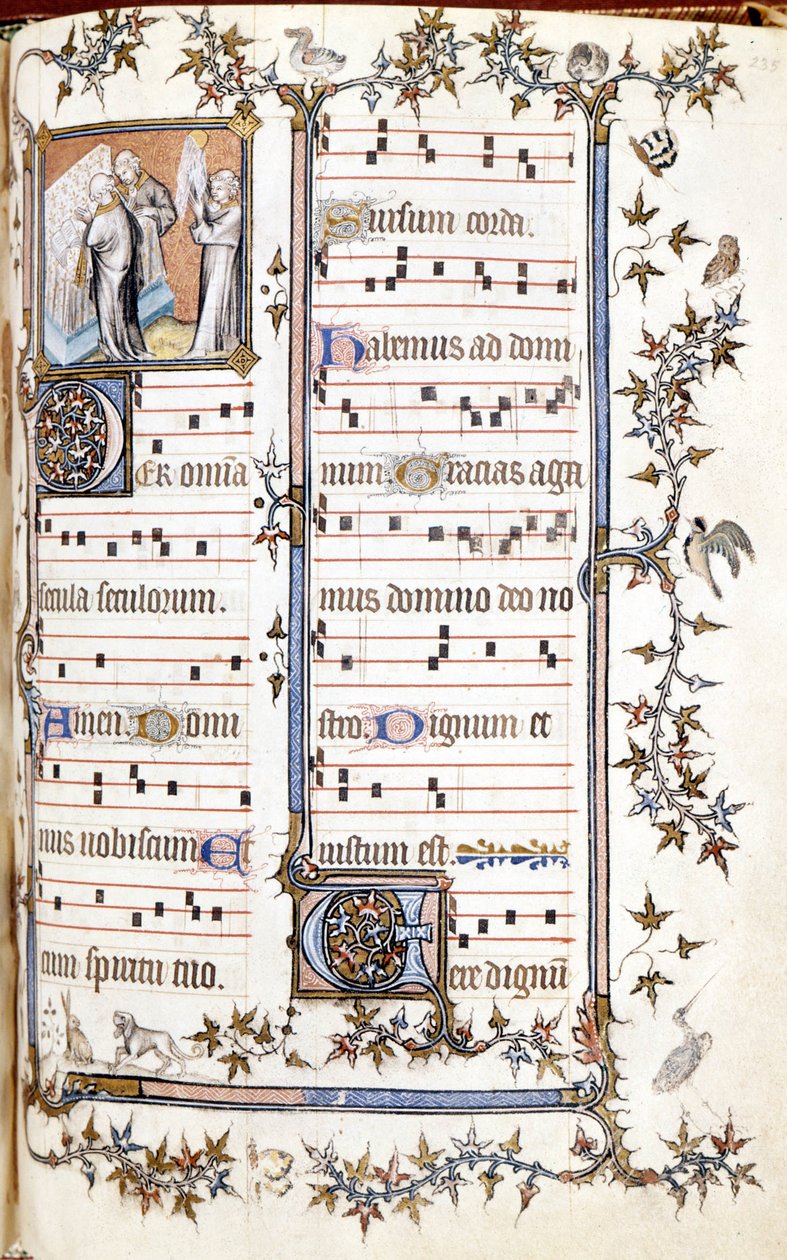 235
PER om̄a
secula seculorum.
Amen. Domi
nus vobiscum Et
cum spiritu tuo.
Sursum corda.
Habemus ad domi
num Gracias aga
mus domino deo no
stro. Dignum et
iustum est.
VEre dignū